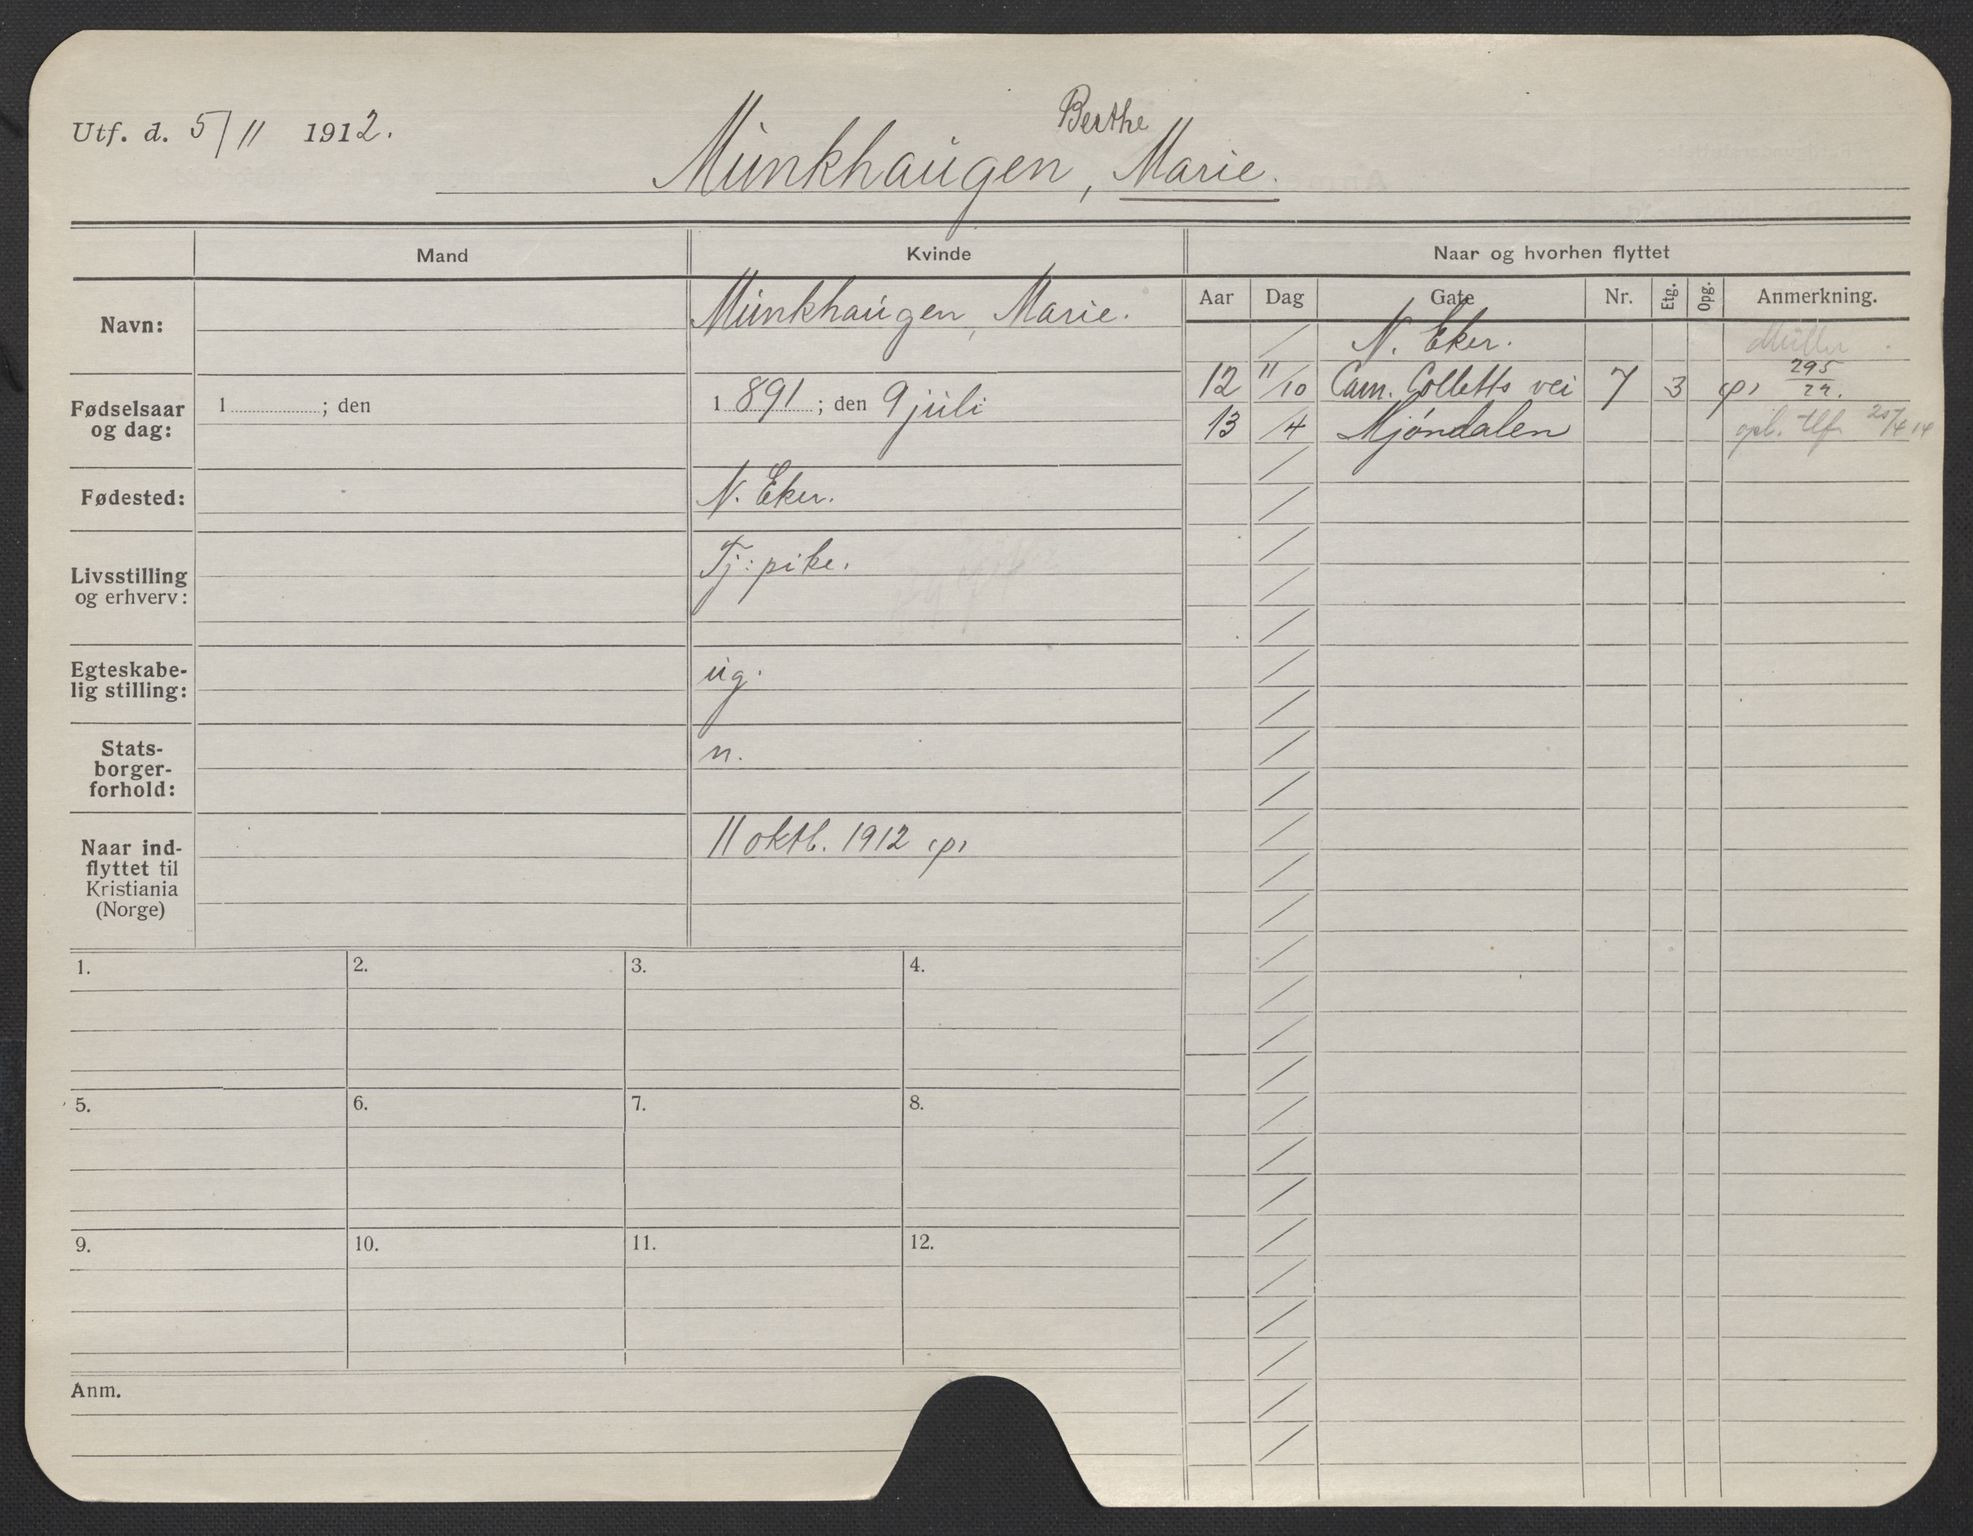 Utf. d. 5/11 1912.
Berthe
Munkhaugen, Marie.
Mand
Kvinde
Naar og hvorhen flyttet
Navn:
Munkhaugen, Marie.
Fødselsaar og dag:
1 ; den
1891 ; den 9 juli
Fødested:
N. Eker.
Livsstilling
og erhverv:
Tj: pike.
Egteskabe-
lig stilling:
ug.
Stats-
borger-
forhold:
n.
Naar ind-
flyttet til
Kristiania
(Norge)
11 oktb. 1912 (p)
Aar Dag Gate Nr. Etg. Opg. Anmerkning.
/ N. Eker. Müller
12 11/10 Cam. Colletts vei 7 3 (p) 295/22.
13 /4 Mjøndalen opl. tlf.
1. 2. 3. 4.
5. 6. 7. 8.
9. 10. 11. 12.
Anm.